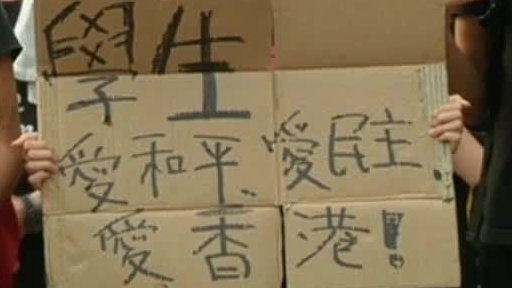 學生
愛和平、愛民主
愛香港!